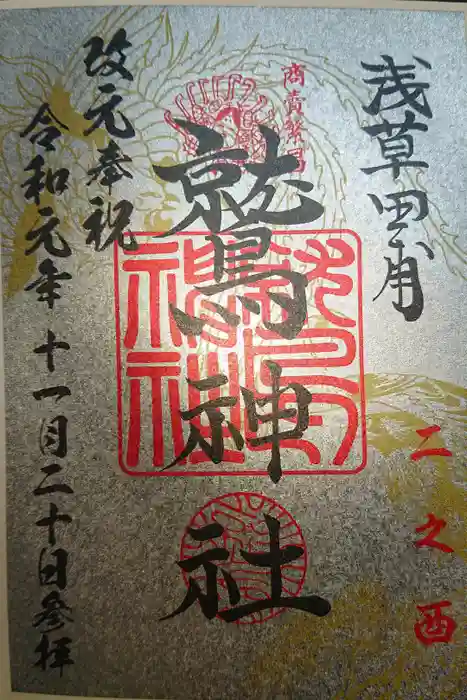 浅草田甫
二之酉
商売繁昌
鷲神社
改元奉祝
令和元年十一月二十日参拝